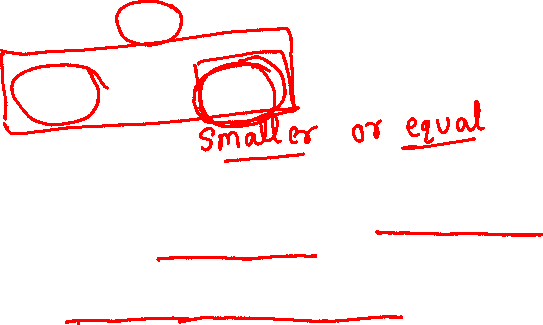 smaller or equal